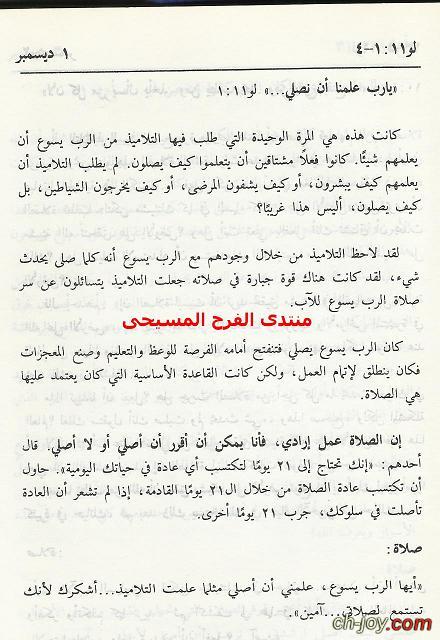 لو١١:١-٤
١ ديسمبر
«يارب علمنا أن نصلي...» لو١١:١
كانت هذه هي المرة الوحيدة التي طلب فيها التلاميذ من الرب يسوع أن
يعلمهم شيئًا. كانوا فعلًا مشتاقين أن يتعلموا كيف يصلون. لم يطلب التلاميذ أن
يعلمهم كيف يبشرون، أو كيف يشفون المرضى، أو كيف يخرجون الشياطين، بل
كيف يصلون، أليس هذا غريبًا؟
لقد لاحظ التلاميذ من خلال وجودهم مع الرب يسوع أنه كلما صلي يحدث
شيء، لقد كانت هناك قوة جبارة في صلاته جعلت التلاميذ يتسائلون عن سر
صلاة الرب يسوع للآب.
منتدى الفرح المسيحى
كان الرب يسوع يصلي فتنفتح أمامه الفرصة للوعظ والتعليم وصنع المعجزات
فكان ينطلق لإتمام العمل، ولكن كانت القاعدة الأساسية التي كان يعتمد عليها هي
الصلاة.
إن الصلاة عمل إرادي، فأنا يمكن أن أقرر أن أصلي أو لا أصلي. قال
أحدهم: «إنك تحتاج إلى ٢١ يومًا لتكتسب أي عادة في حياتك اليومية». حاول
أن تكتسب عادة الصلاة من خلال ال٢١ يومًا القادمة، إذا لم تشعر أن العادة
تأصلت في سلوكك، جرب ٢١ يومًا أخرى.
صلاة:
«أيها الرب يسوع، علمني أن أصلي مثلما علمت التلاميذ...أشكرك لأنك
تستمع لصلاتي...آمين».
ch-joy.com